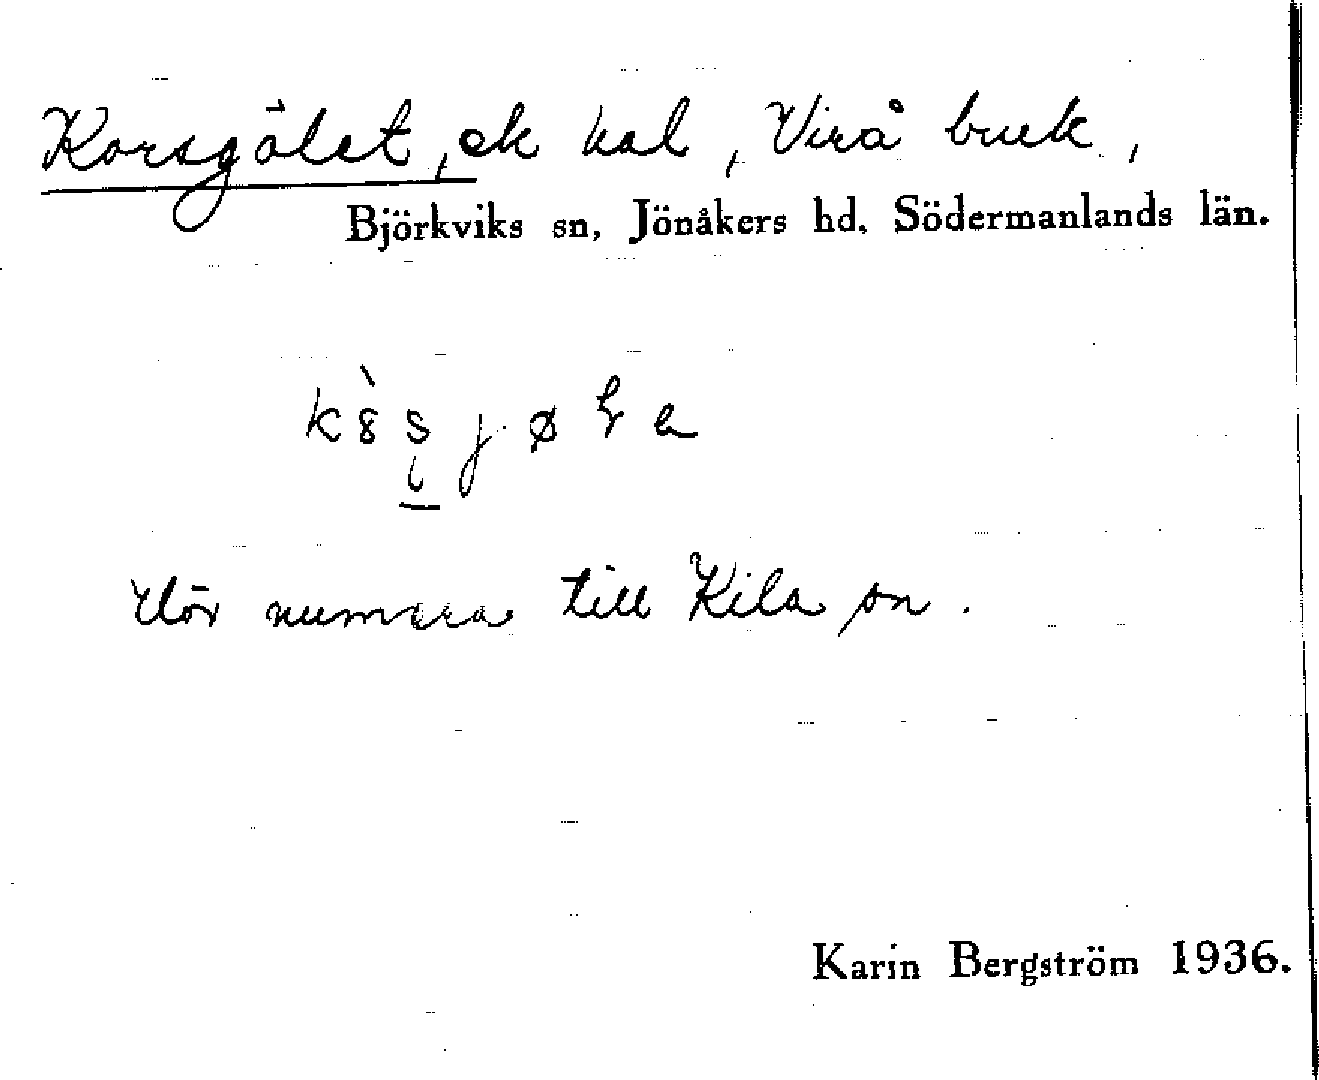 Korsgölet, ek hal, Virå bruk,
Björkviks sn, Jönåkers hd. Södermanlands län.
Hör numera till Kila sn.
Karin Bergström 1936.